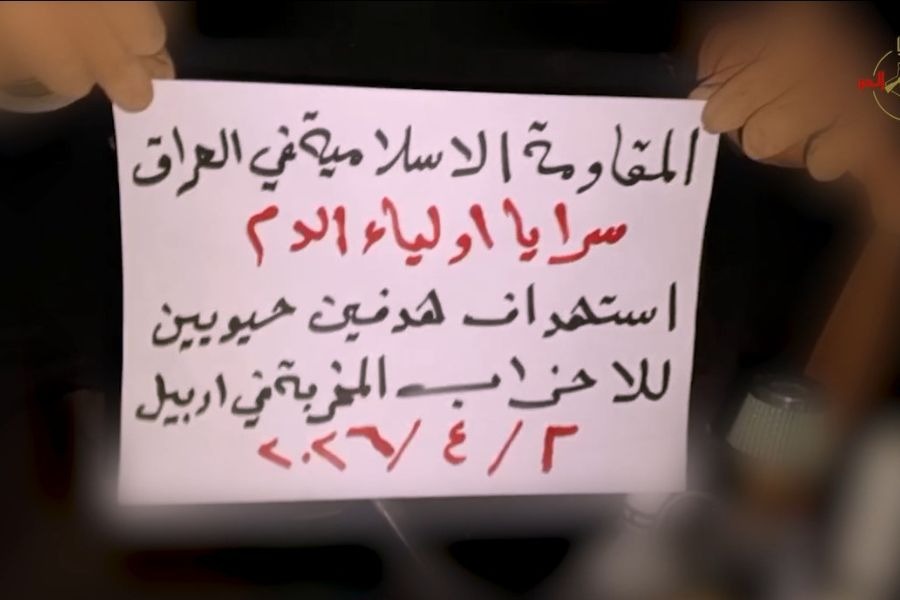 المقاومة الاسلامية في العراق
سرايا اولياء الدم
استهداف هدفين حيويين
للاحزاب المخربة في اربيل
٢ / ٤ / ٢٠٢٦